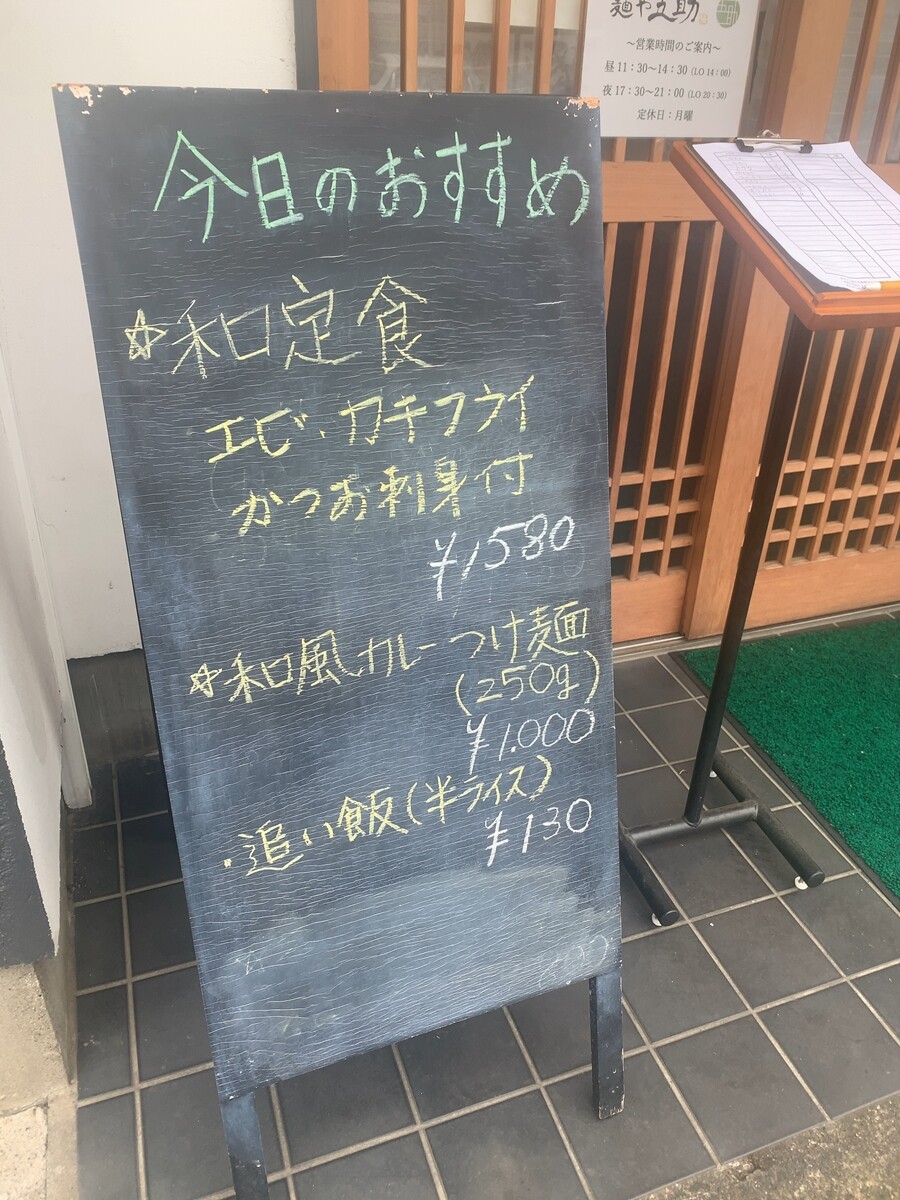 麺や五助
～営業時間のご案内～
昼11：30～14：30（LO 14：00）
夜17：30～21：00（LO 20：30）
定休日：月曜
今日のおすすめ
☆和定食
エビ、カキフライ
かつお刺身付
¥1580
☆和風カレーつけ麺
(250g)
¥1.000
・追い飯(半ライス)
¥130